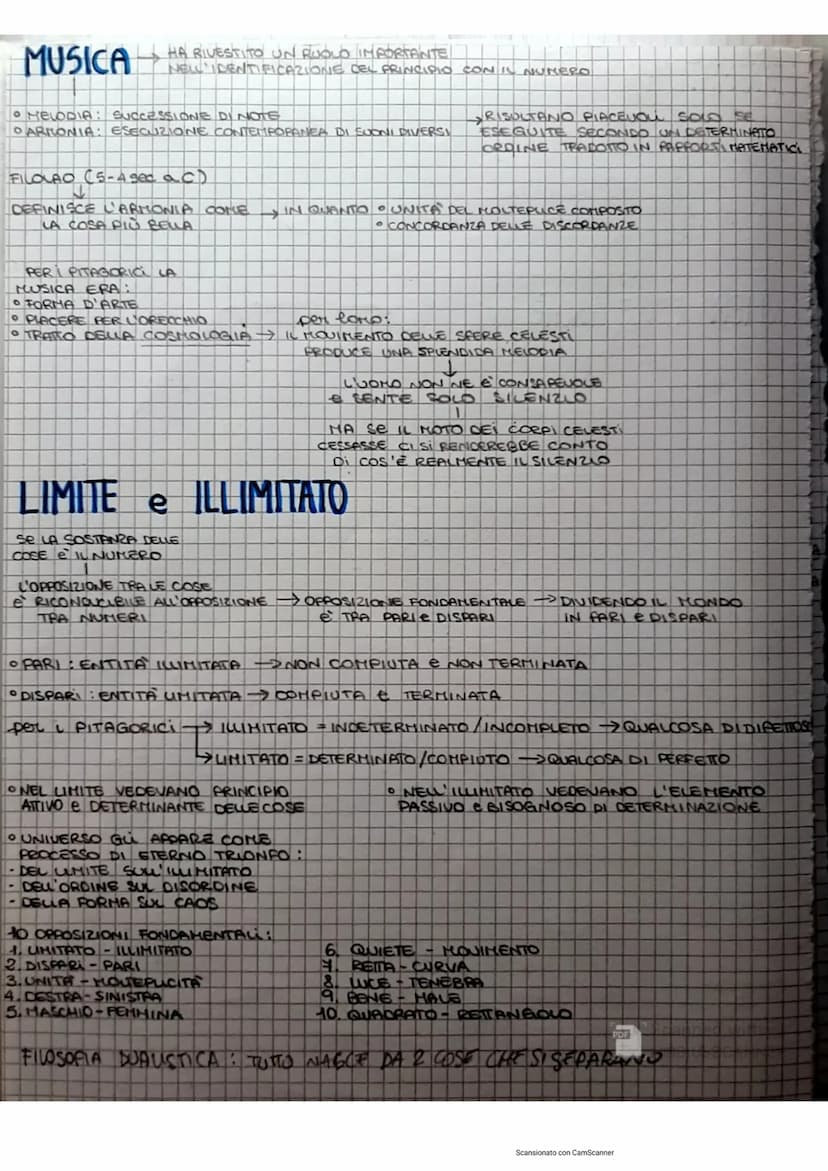 MUSICA → HA RIVESTITO UN RUOLO IMPORTANTE
NELL'IDENTIFICAZIONE DEL PRINCIPIO CON IL NUMERO
° MELODIA: SUCCESSIONE DI NOTE
° ARMONIA: ESECUZIONE CONTEMPORANEA DI SUONI DIVERSI
→ RISULTANO PIACEVOLI SOLO SE
ESEGUITE SECONDO UN DETERMINATO
ORDINE TRADOTTO IN RAPPORTI MATEMATICI
FILOLAO (5-4 sec a.C)
↓
DEFINISCE L'ARMONIA COME → IN QUANTO ° UNITÀ DEL MOLTEPLICE COMPOSTO
LA COSA PIÙ BELLA ° CONCORDANZA DELLE DISCORDANZE
PER I PITAGORICI LA
MUSICA ERA:
° FORMA D'ARTE
° PIACERE PER L'ORECCHIO
° TRATTO DELLA COSMOLOGIA →
per loro:
IL MOVIMENTO DELLE SFERE CELESTI
PRODUCE UNA SPLENDIDA MELODIA
↓
L'UOMO NON NE È CONSAPEVOLE
e SENTE SOLO SILENZIO
MA SE IL MOTO DEI CORPI CELESTI
CESSASSE CI SI RENDEREBBE CONTO
DI COS'È REALMENTE IL SILENZIO
LIMITE e ILLIMITATO
SE LA SOSTANZA DELLE
COSE È IL NUMERO
L'OPPOSIZIONE TRA LE COSE
È RICONDUCIBILE ALL'OPPOSIZIONE → OPPOSIZIONE FONDAMENTALE → DIVIDENDO IL MONDO
TRA NUMERI È TRA PARI e DISPARI IN PARI e DISPARI
° PARI: ENTITÀ ILLIMITATA → NON COMPIUTA e NON TERMINATA
° DISPARI: ENTITÀ LIMITATA → COMPIUTA e TERMINATA
per i PITAGORICI → ILLIMITATO = INDETERMINATO/INCOMPLETO → QUALCOSA DI DIFETTOSO
→ LIMITATO = DETERMINATO/COMPIUTO → QUALCOSA DI PERFETTO
° NEL LIMITE VEDEVANO PRINCIPIO
ATTIVO e DETERMINANTE DELLE COSE
° NELL'ILLIMITATO VEDEVANO L'ELEMENTO
PASSIVO e BISOGNOSO DI DETERMINAZIONE
° UNIVERSO GLI APPARE COME
PROCESSO DI ETERNO TRIONFO:
- DEL LIMITE SULL'ILLIMITATO
- DELL'ORDINE SUL DISORDINE
- DELLA FORMA SUL CAOS
10 OPPOSIZIONI FONDAMENTALI:
1. LIMITATO - ILLIMITATO
2. DISPARI - PARI
3. UNITÀ - MOLTEPLICITÀ
4. DESTRA - SINISTRA
5. MASCHIO - FEMMINA
6. QUIETE - MOVIMENTO
7. RETTA - CURVA
8. LUCE - TENEBRA
9. BENE - MALE
10. QUADRATO - RETTANGOLO
FILOSOFIA DUALISTICA: TUTTO NASCE DA 2 COSE CHE SI SEPARANO
PDF
Scansionato con CamScanner